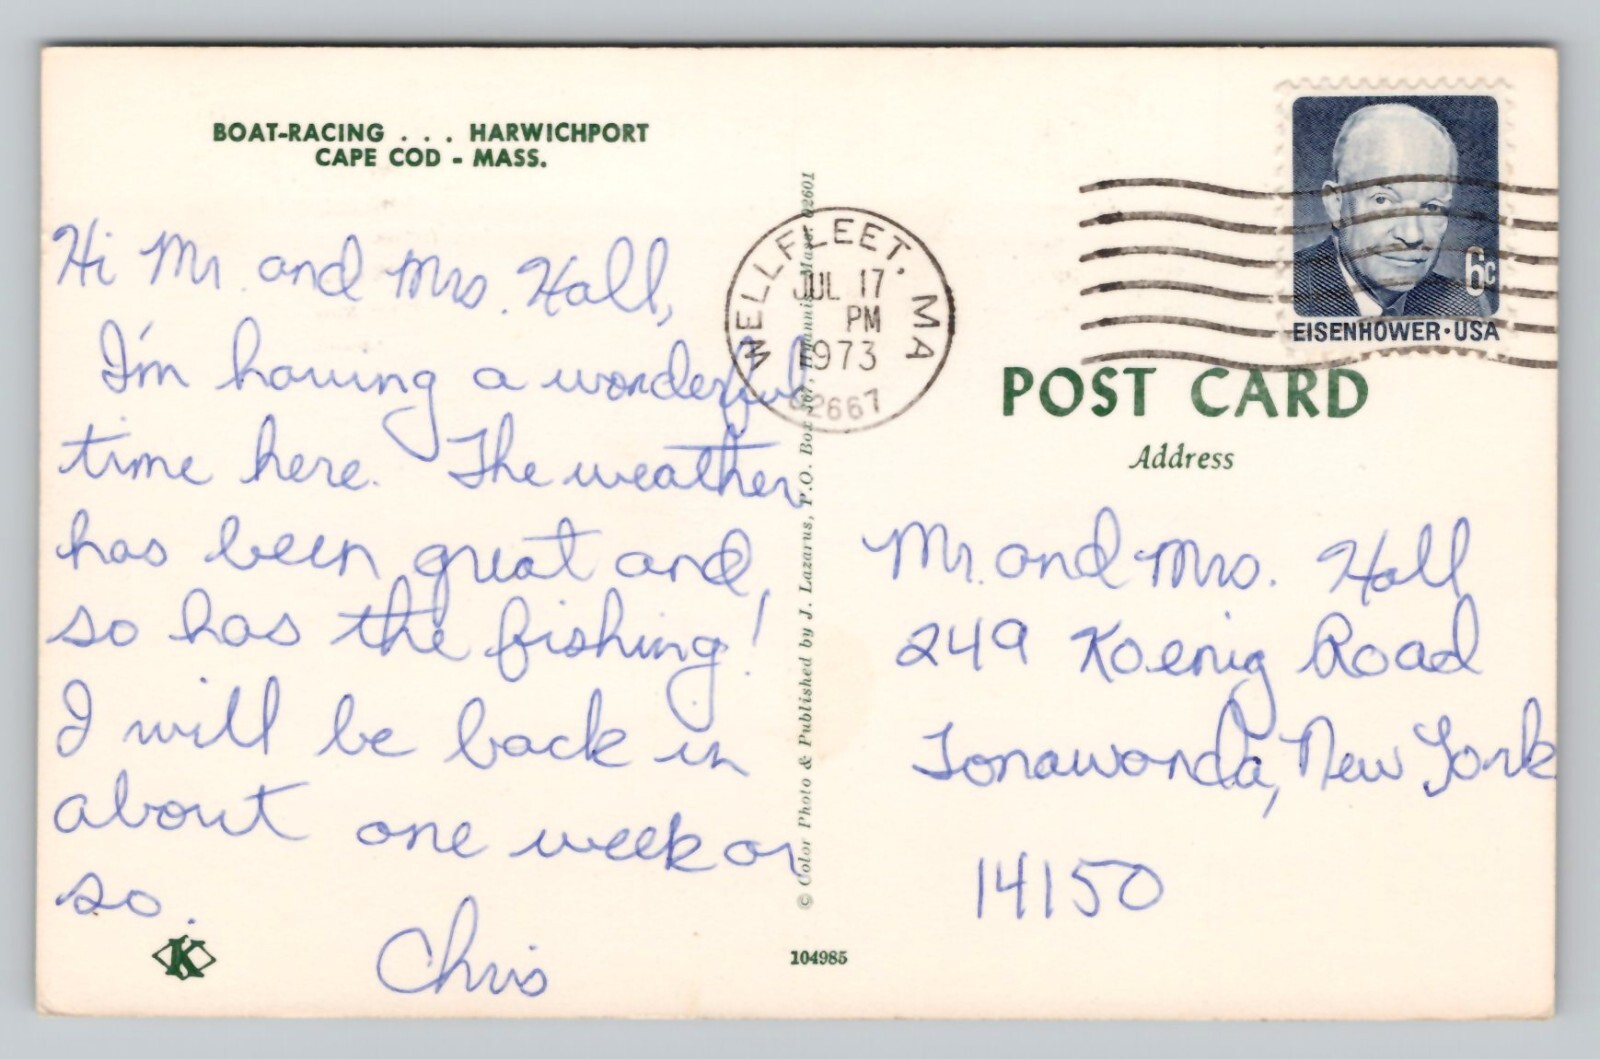 BOAT-RACING . . . HARWICHPORT
CAPE COD - MASS.
Hi Mr and Mrs. Hall,
I'm having a wonderful
time here. The weather
has been great and
so has the fishing!
I will be back in
about one week or
so.
Chris
K
© Color Photo & Published by J. Lazarus, P.O. Box 367, Hyannis, Mass. 02601
104985
WELLFLEET, MA
JUL 17
PM
1973
02667
6c
EISENHOWER·USA
POST CARD
Address
Mr. and Mrs. Hall
249 Koenig Road
Tonawanda, New York
14150